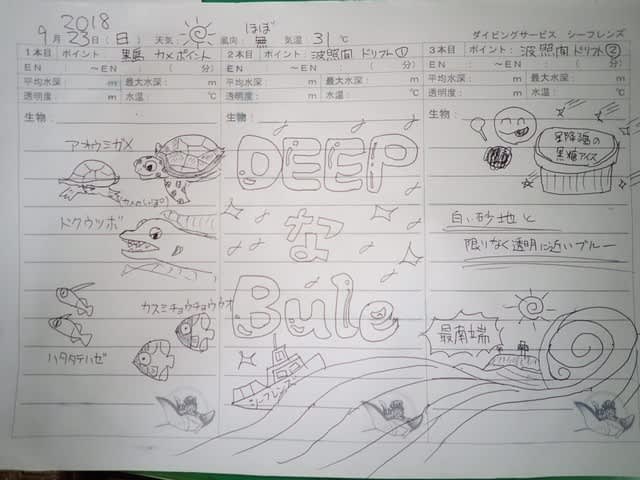 2018
9月23日(日) 天気: 風向: ほぼ無 気温 31℃ ダイビングサービス シーフレンズ
1本目 ポイント 黒島 カメポイント
EN : ～EN : ( 分)
平均水深: m 最大水深: m
透明度: m 水温: ℃
生物:
アオウミガメ
ドクウツボ
カスミチョウチョウウオ
ハタタテハゼ
2本目 ポイント: 波照間 ドリフト①
EN : ～EN : ( 分)
平均水深: m 最大水深: m
透明度: m 水温: ℃
生物:
DEEP
な
Bule
シーフレンズ
3本目 ポイント: 波照間 ドリフト②
EN : ～EN : ( 分)
平均水深: m 最大水深: m
透明度: m 水温: ℃
生物:
黒糖アイス
白い砂地と
限りなく透明に近いブルー
最南端